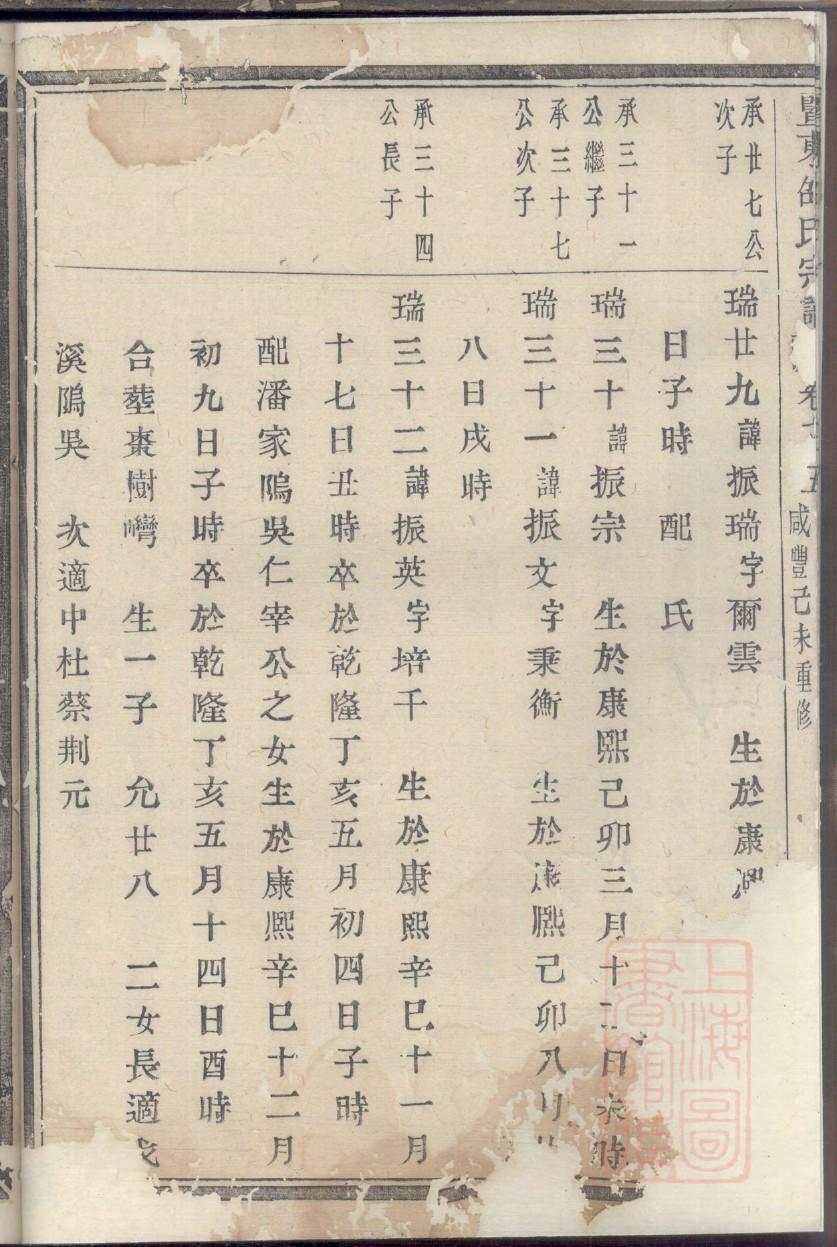 氏宗
咸豐己未重修
承廿七公
次子
瑞廿九諱振瑞字爾雲　生於康
日子時　配　氏
承三十一
公繼子
瑞三十諱振宗　生於康熙己卯三月十二日　時
承三十七
公次子
瑞三十一諱振文字秉衡　生於康熙己卯八月
八日戌時
承三十四
公長子
瑞三十二諱振英字培千　生於康熙辛巳十一月
十七日丑時卒於乾隆丁亥五月初四日子時
配潘家隝吳仁宰公之女生於康熙辛巳十二月
初九日子時卒於乾隆丁亥五月十四日酉時
合塟棗樹灣　生一子　允廿八　二女長適
溪隝吳　次適中杜蔡荆元
上海圖書館藏